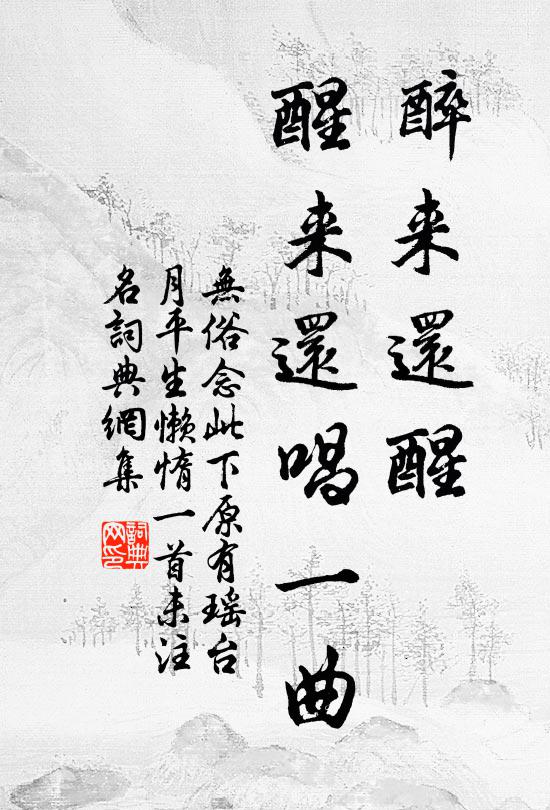 醉来還醒
醒来還唱一曲
無俗念此下原有瑶台
月平生懒惰一首未注
名詞典網集
詞典网印